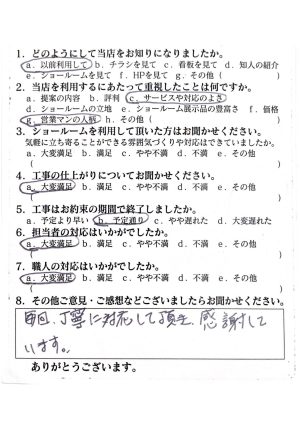 1. どのようにして当店をお知りになりましたか。
a. 以前利用して b. チラシを見て c. 看板を見て d. 知人の紹介
e. ショールームを見て f. HPを見て g. その他 ( )
2. 当店を利用するにあたって重視したことは何ですか。
a. 提案の内容 b. 評判 c. サービスや対応のよさ
d. ショールームの立地 e. ショールーム展示品の豊富さ f. 価格
g. 営業マンの人柄 h. その他 ( )
3. ショールームを利用して頂いた方はお聞かせください。
気軽に立ち寄ることができる雰囲気づくりや対応はできていましたか。
a. 大変満足 b. 満足 c. やや不満 d. 不満 e. その他
( )
4. 工事の仕上がりについてお聞かせください。
a. 大変満足 b. 満足 c. やや不満 d. 不満 e. その他
( )
5. 工事はお約束の期間で終了しましたか。
a. 予定より早い b. 予定通り c. やや遅れた d. 大変遅れた
6. 担当者の対応はいかがでしたか。
a. 大変満足 b. 満足 c. やや不満 d. 不満 e. その他
( )
7. 職人の対応はいかがでしたか。
a. 大変満足 b. 満足 c. やや不満 d. 不満 e. その他
( )
8. その他ご意見・ご感想などございましたらお聞かせください。
毎回、丁寧に対応して頂き、感謝して
います。
ありがとうございます。